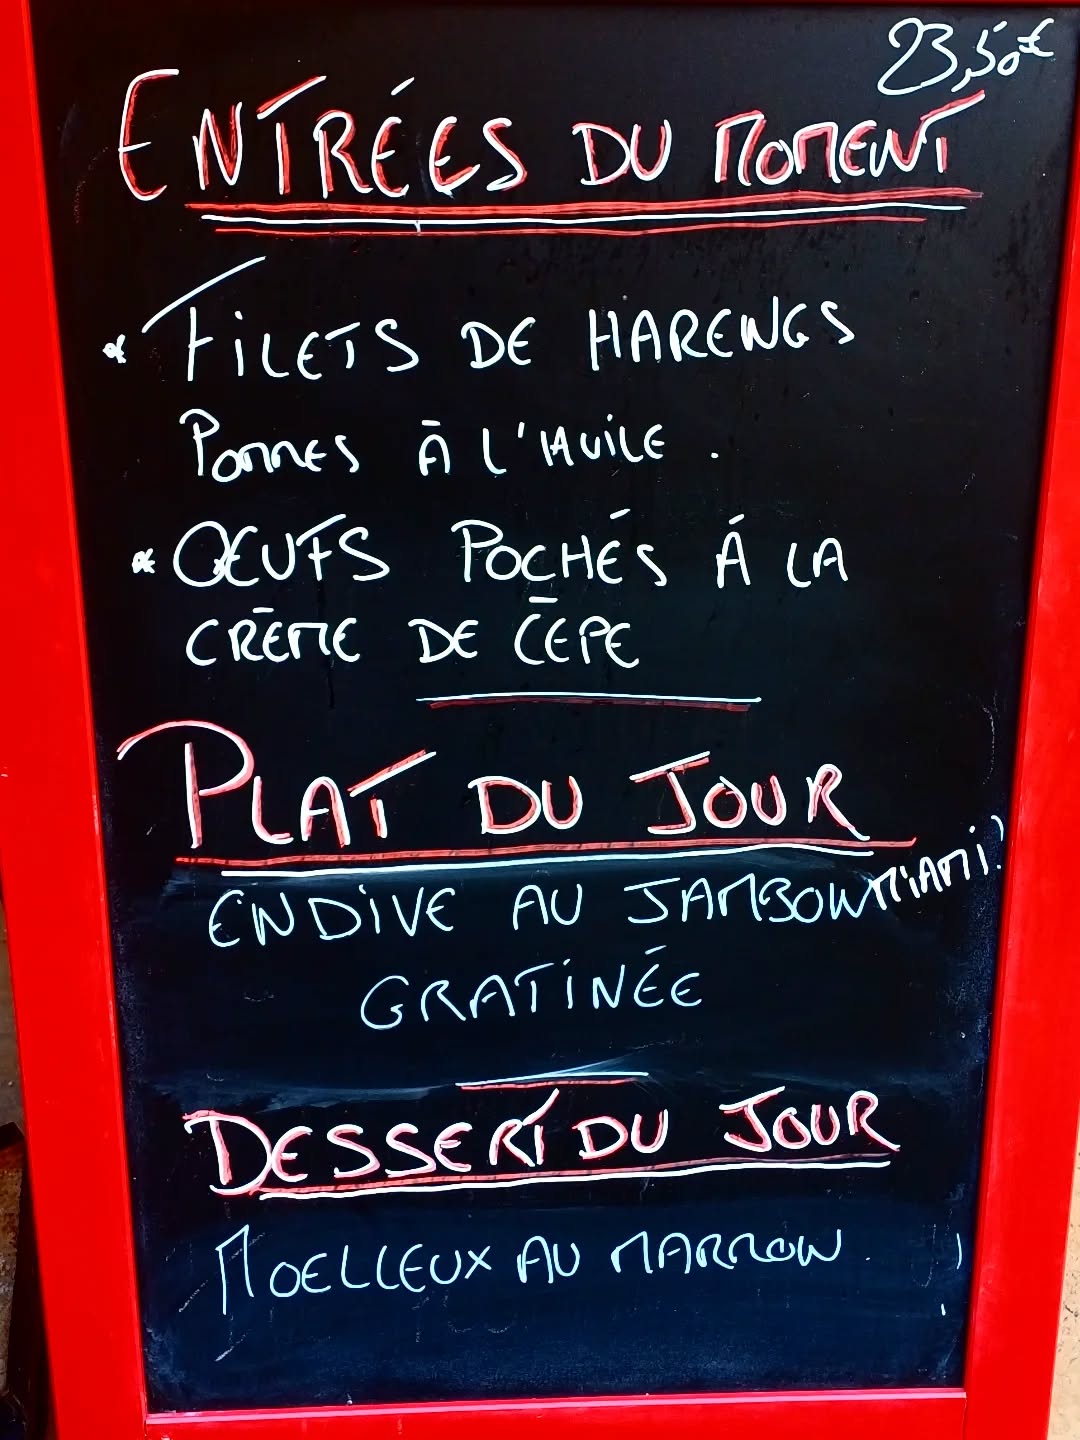 23,50€
ENTRÉES DU MOMENT
* FILETS DE HARENGS
POMMES À L'HUILE.
* ŒUFS POCHÉS Á LA
CRÈME DE CÈPE
PLAT DU JOUR
ENDIVE AU JAMBON MIAM!
GRATINÉE
DESSERT DU JOUR
MOELLEUX AU MARRON.